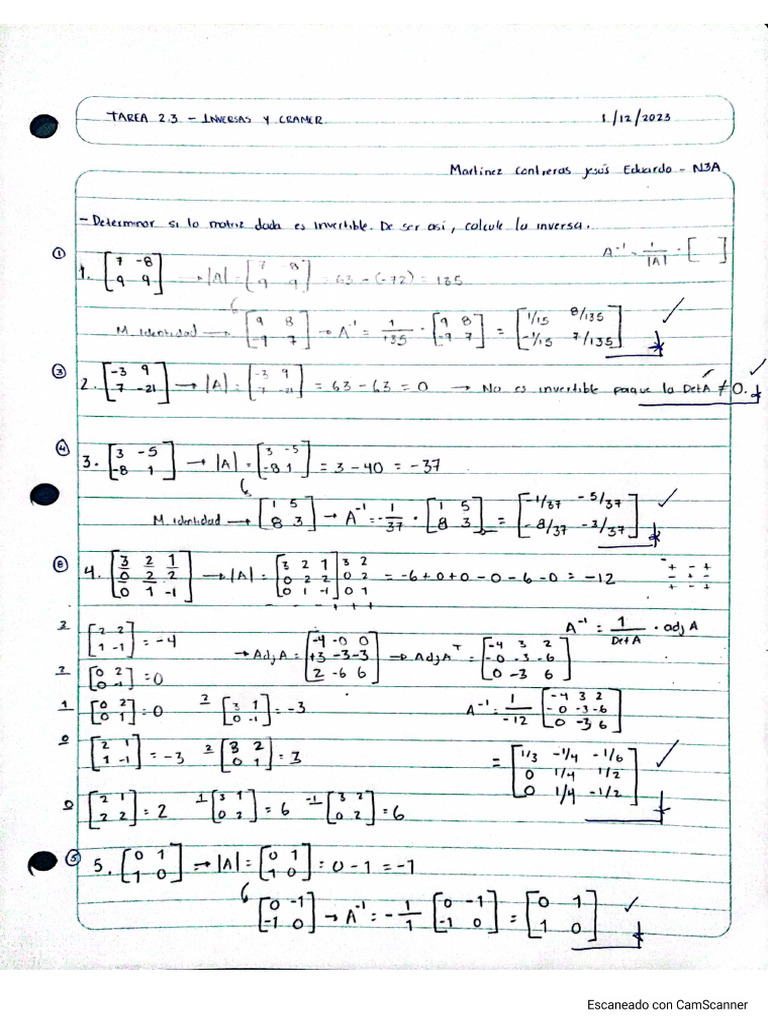 TAREA 2.3 - INVERSAS Y CRAMER. 1/12/2023
Martínez Contreras Jesús Eduardo - N3A
- Determinar si la matriz dada es invertible. De ser así, calcule la inversa.
A⁻¹ = 1/|A| · [ ]
① 1. [7 -8; 9 9] → |A| = [7 8; 9 9] = 63 - (-72) = 135
M. Identidad → [9 8; -9 7] → A⁻¹ = 1/135 · [9 8; -9 7] = [1/15 8/135; -1/15 7/135] ✓
③ 2. [-3 9; 7 -21] → |A| = [-3 9; 7 -21] = 63 - 63 = 0 → No es invertible porque la DetA ≠ 0. ✓
④ 3. [3 -5; -8 1] → |A| = [3 -5; -8 1] = 3 - 40 = -37
M. identidad → [1 5; 8 3] → A⁻¹ = -1/37 · [1 5; 8 3] = [-1/37 -5/37; -8/37 -3/37] ✓
⑧ 4. [3 2 1; 0 2 2; 0 1 -1] → |A| = [3 2 1; 0 2 2; 0 1 -1] 3 2; 0 2; 0 1 = -6 + 0 + 0 - 0 - 6 - 0 = -12
- - - + + +
+ - +
- + -
+ - +
A⁻¹ = 1/DetA · adj A
2 [2 2; 1 -1] = -4
→ AdjA = [-4 -0 0; +3 -3 -3; 2 -6 6] → AdjAᵀ = [-4 3 2; -0 -3 -6; 0 -3 6]
2 [0 2; 0 -1] = 0
1 [0 2; 0 1] = 0 2 [3 1; 0 -1] = -3 A⁻¹ = 1/-12 [-4 3 2; -0 -3 -6; 0 -3 6]
0 [2 1; 1 -1] = -3 2 [3 2; 0 1] = 3 = [1/3 -1/4 -1/6; 0 1/4 1/2; 0 1/4 -1/2] ✓
0 [2 1; 2 2] = 2 1 [3 1; 0 2] = 6 -1 [3 2; 0 2] = 6
⑤ 5. [0 1; 1 0] → |A| = [0 1; 1 0] = 0 - 1 = -1
[0 -1; -1 0] → A⁻¹ = -1/1 [0 -1; -1 0] = [0 1; 1 0] ✓
Escaneado con CamScanner